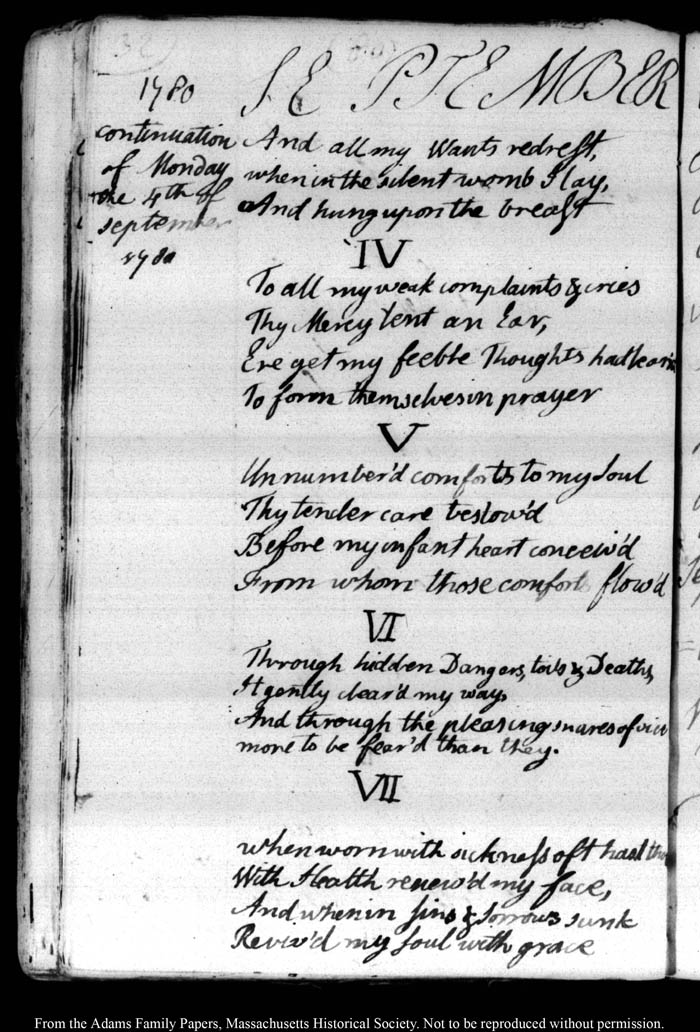 1780 SEPTEMBER
continuation
of Monday
the 4th of
september
1780
And all my Wants redrest,
when in the silent womb I lay,
And hung upon the breast
IV
To all my weak complaints & cries
Thy Mercy lent an Ear,
Ere yet my feeble Thoughts had learn
To form themselves in prayer
V
Unnumber'd comforts to my Soul
Thy tender care bestow'd
Before my infant heart conceiv'd
From whom those comforts flow'd
VI
Through hidden Dangers, toils & Deaths,
It gently clear'd my way,
And through the pleasing snares of vice
more to be fear'd than they.
VII
when worn with sickness oft hast thou
With Health renew'd my face,
And when in Sins & Sorrows sunk
Reviv'd my Soul with grace
From the Adams Family Papers, Massachusetts Historical Society. Not to be reproduced without permission.